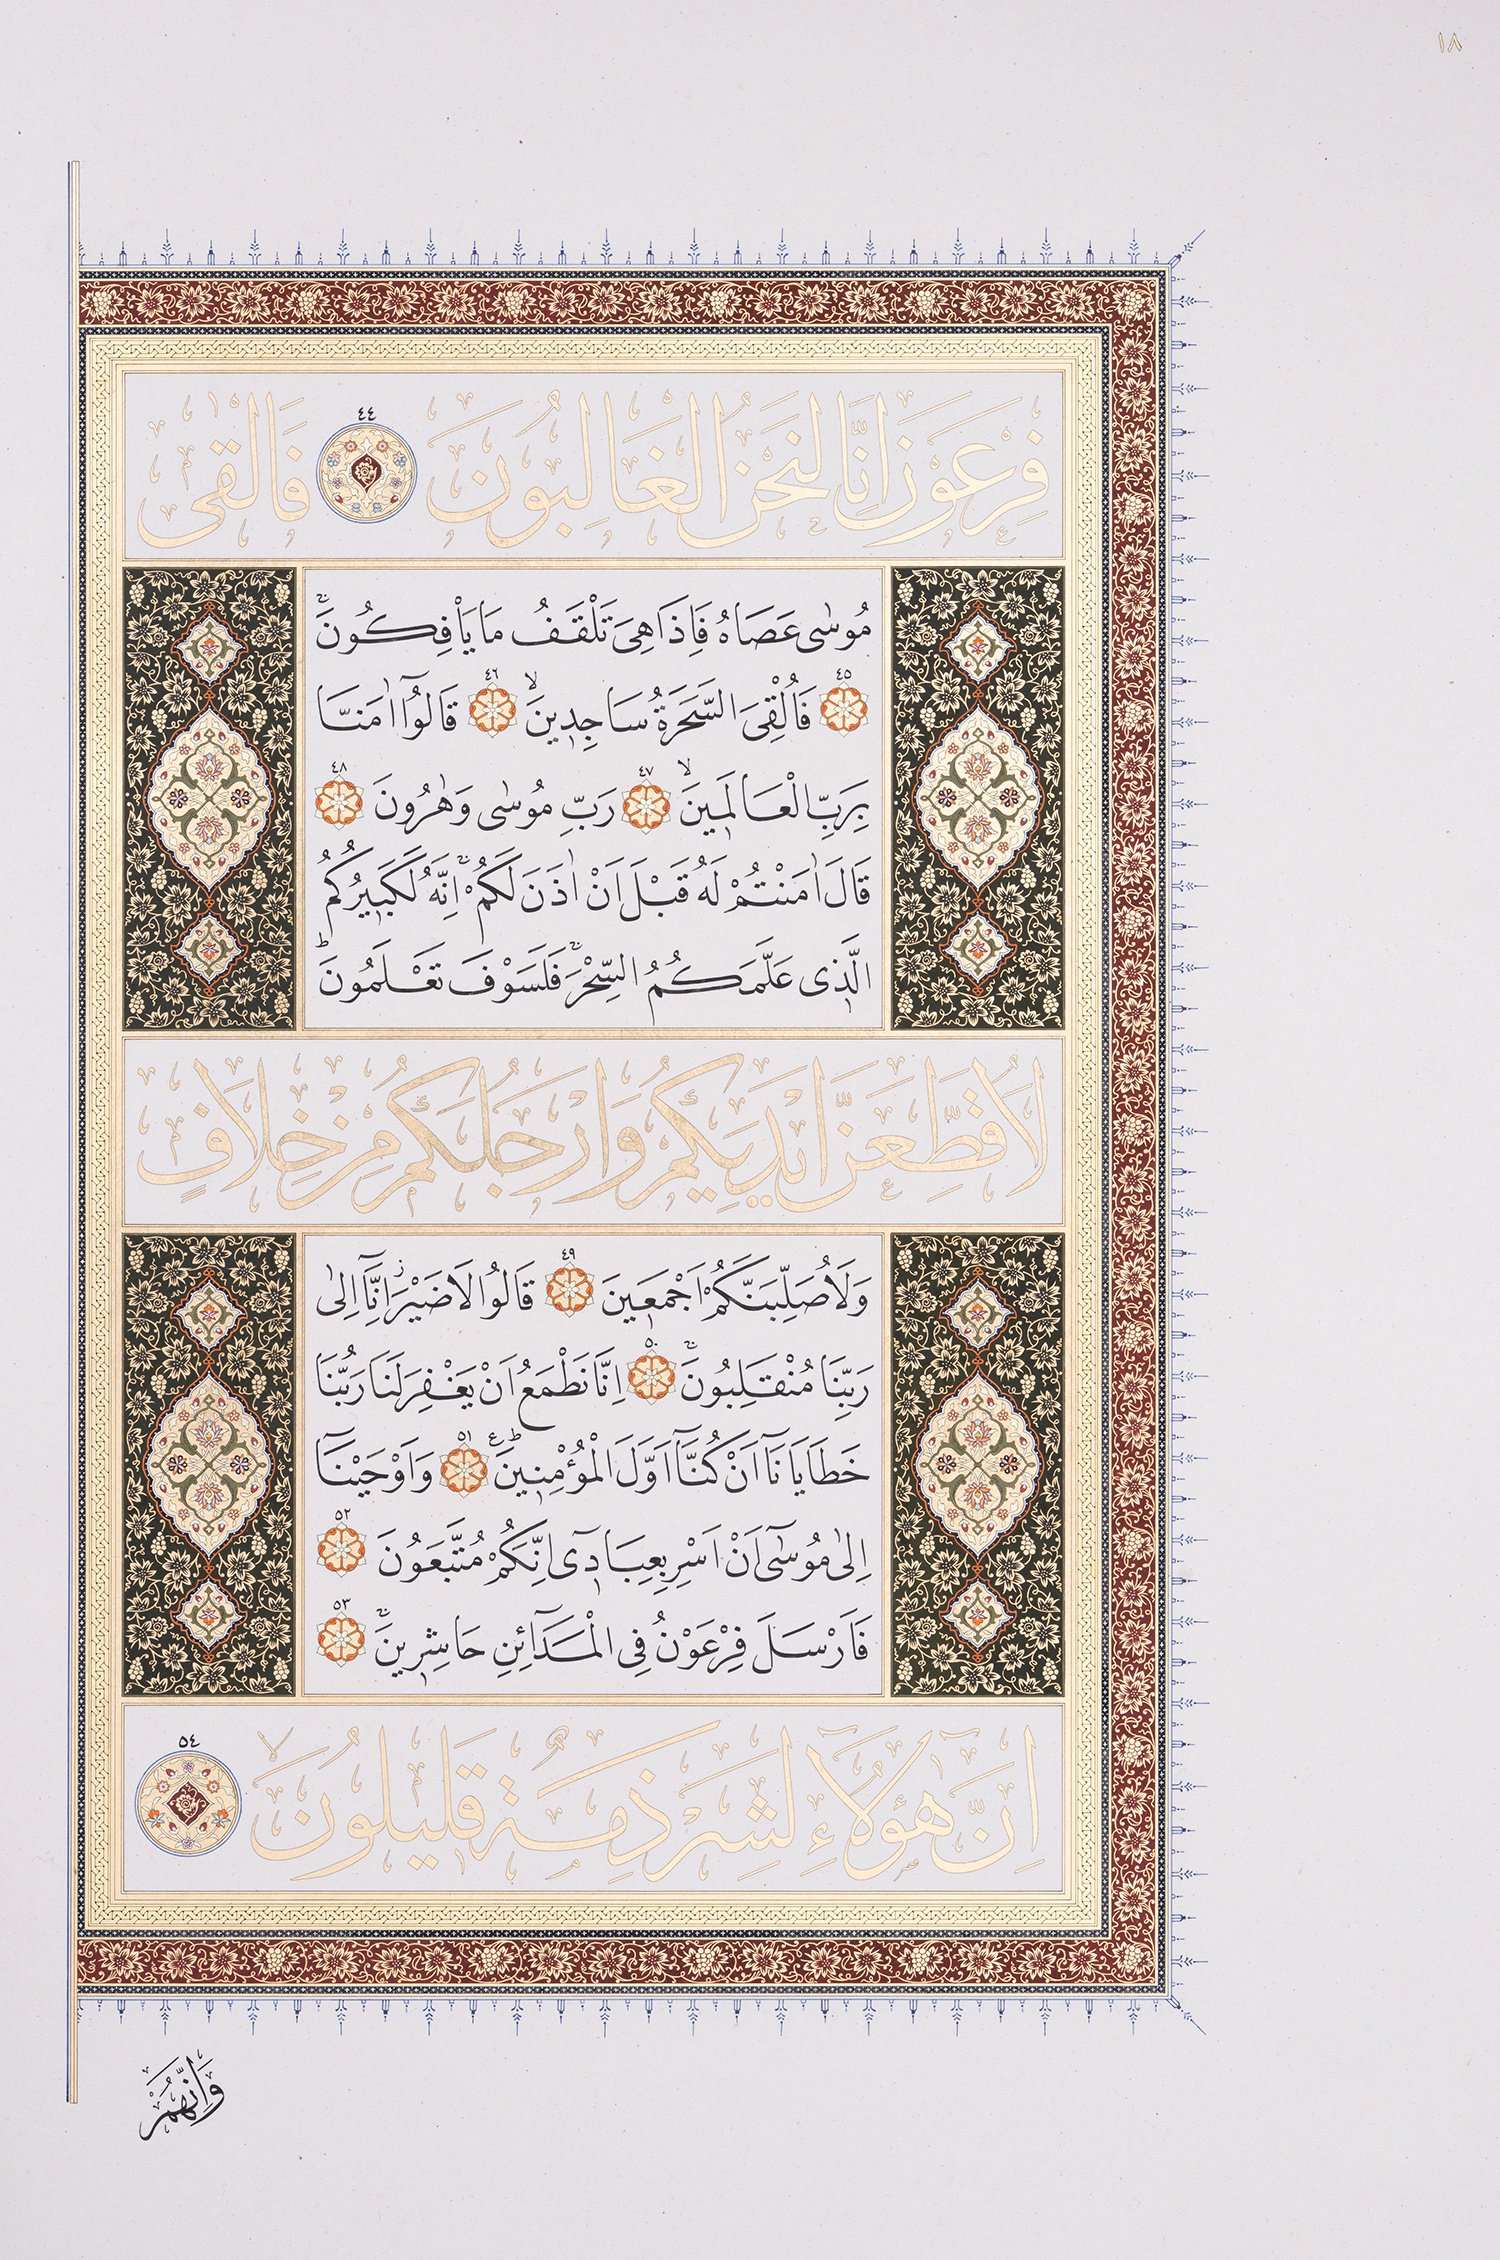 ١٨
فِرْعَوْنَ اِنَّا لَنَحْنُ الْغَالِبُونَ ٤٤ فَاَلْقٰى
مُوسٰى عَصَاهُ فَاِذَا هِىَ تَلْقَفُ مَا يَاْفِكُونَۚ
٤٥ فَاُلْقِىَ السَّحَرَةُ سَاجِد۪ينَۙ ٤٦ قَالُٓوا اٰمَنَّا
بِرَبِّ الْعَالَم۪ينَۙ ٤٧ رَبِّ مُوسٰى وَهٰرُونَ ٤٨
قَالَ اٰمَنْتُمْ لَهُ قَبْلَ اَنْ اٰذَنَ لَكُمْۚ اِنَّهُ لَكَب۪يرُكُمُ
الَّذ۪ى عَلَّمَكُمُ السِّحْرَۚ فَلَسَوْفَ تَعْلَمُونَۜ
لَاُقَطِّعَنَّ اَيْدِيَكُمْ وَاَرْجُلَكُمْ مِنْ خِلَافٍ
وَلَاُصَلِّبَنَّكُمْ اَجْمَع۪ينَ ٤٩ قَالُوا لَا ضَيْرَۘ اِنَّٓا اِلٰى
رَبِّنَا مُنْقَلِبُونَۚ ٥٠ اِنَّا نَطْمَعُ اَنْ يَغْفِرَ لَنَا رَبُّنَا
خَطَايَانَٓا اَنْ كُنَّٓا اَوَّلَ الْمُؤْمِن۪ينَۜ ع ٥١ وَاَوْحَيْنَٓا
اِلٰى مُوسٰٓى اَنْ اَسْرِ بِعِبَاد۪ٓى اِنَّكُمْ مُتَّبَعُونَ ٥٢
فَاَرْسَلَ فِرْعَوْنُ فِى الْمَدَٓائِنِ حَاشِر۪ينَۚ ٥٣
اِنَّ هٰٓؤُلَٓاءِ لَشِرْذِمَةٌ قَل۪يلُونَۙ ٥٤
وَاِنَّهُمْ